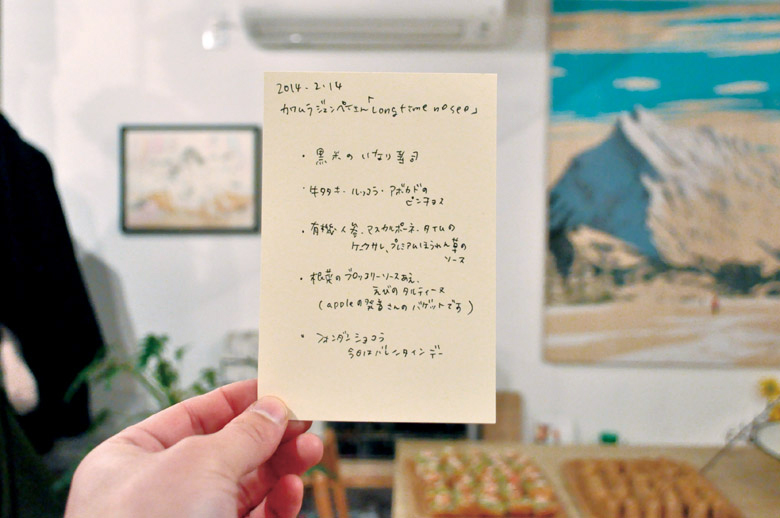 2014.2.14
カワムラジュンペーさん「Long time no see」
・黒米のいなり寿司
・牛タタキ・ルッコラ・アボカドの
ピンチョス
・有機人参、マスカルポーネ、タイムの
ケークサレ、プレミアムほうれん草の
ソース
・根菜のブロッコリーソースあえ、
えびのタルティーヌ
(appleの さんのバゲットです)
・フォンダンショコラ
今日はバレンタインデー